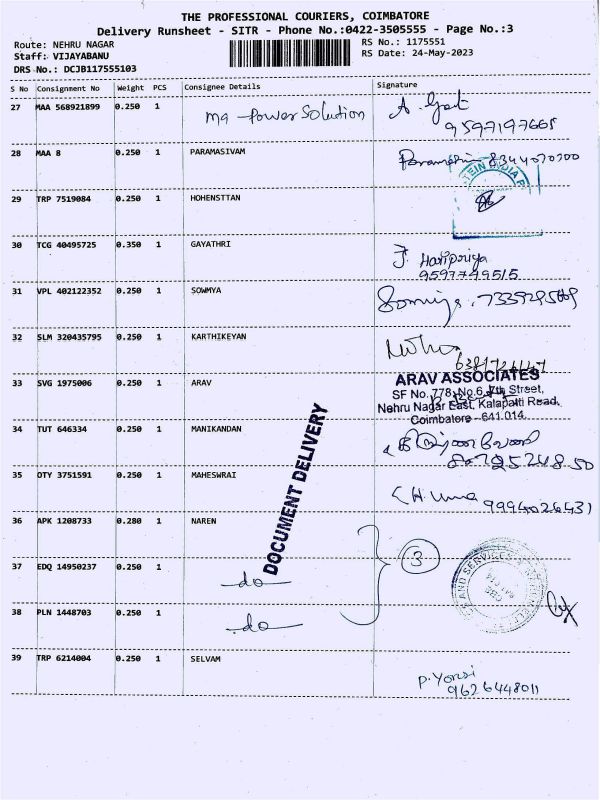 THE PROFESSIONAL COURIERS, COIMBATORE
Delivery Runsheet - SITR - Phone No.:0422-3505555 - Page No.:3
Route: NEHRU NAGAR
Staff: VIJAYABANU
DRS No.: DCJB117555103
RS No.: 1175551
RS Date: 24-May-2023
S No Consignment No Weight PCS Consignee Details Signature
27 MAA 568921899 0.250 1 ma power Solution
9597197665
28 MAA 8 0.250 1 PARAMASIVAM 8344070700
29 TRP 7519084 0.250 1 HOHENSTTAN
30 TCG 40495725 0.350 1 GAYATHRI J. Haripriya
9597799515
31 VPL 402122352 0.250 1 SOWMYA
32 SLM 320435795 0.250 1 KARTHIKEYAN
33 SVG 1975006 0.250 1 ARAV
ARAV ASSOCIATES
SF No. 778, No.6, 7th Street,
Nehru Nagar East, Kalapatti Road,
Coimbatore - 641 014.
34 TUT 646334 0.250 1 MANIKANDAN
35 OTY 3751591 0.250 1 MAHESWRAI
9994026431
36 APK 1208733 0.280 1 NAREN
DOCUMENT DELIVERY
37 EDQ 14950237 0.250 1 do 3
38 PLN 1448703 0.250 1 do
39 TRP 6214004 0.250 1 SELVAM
9626448011